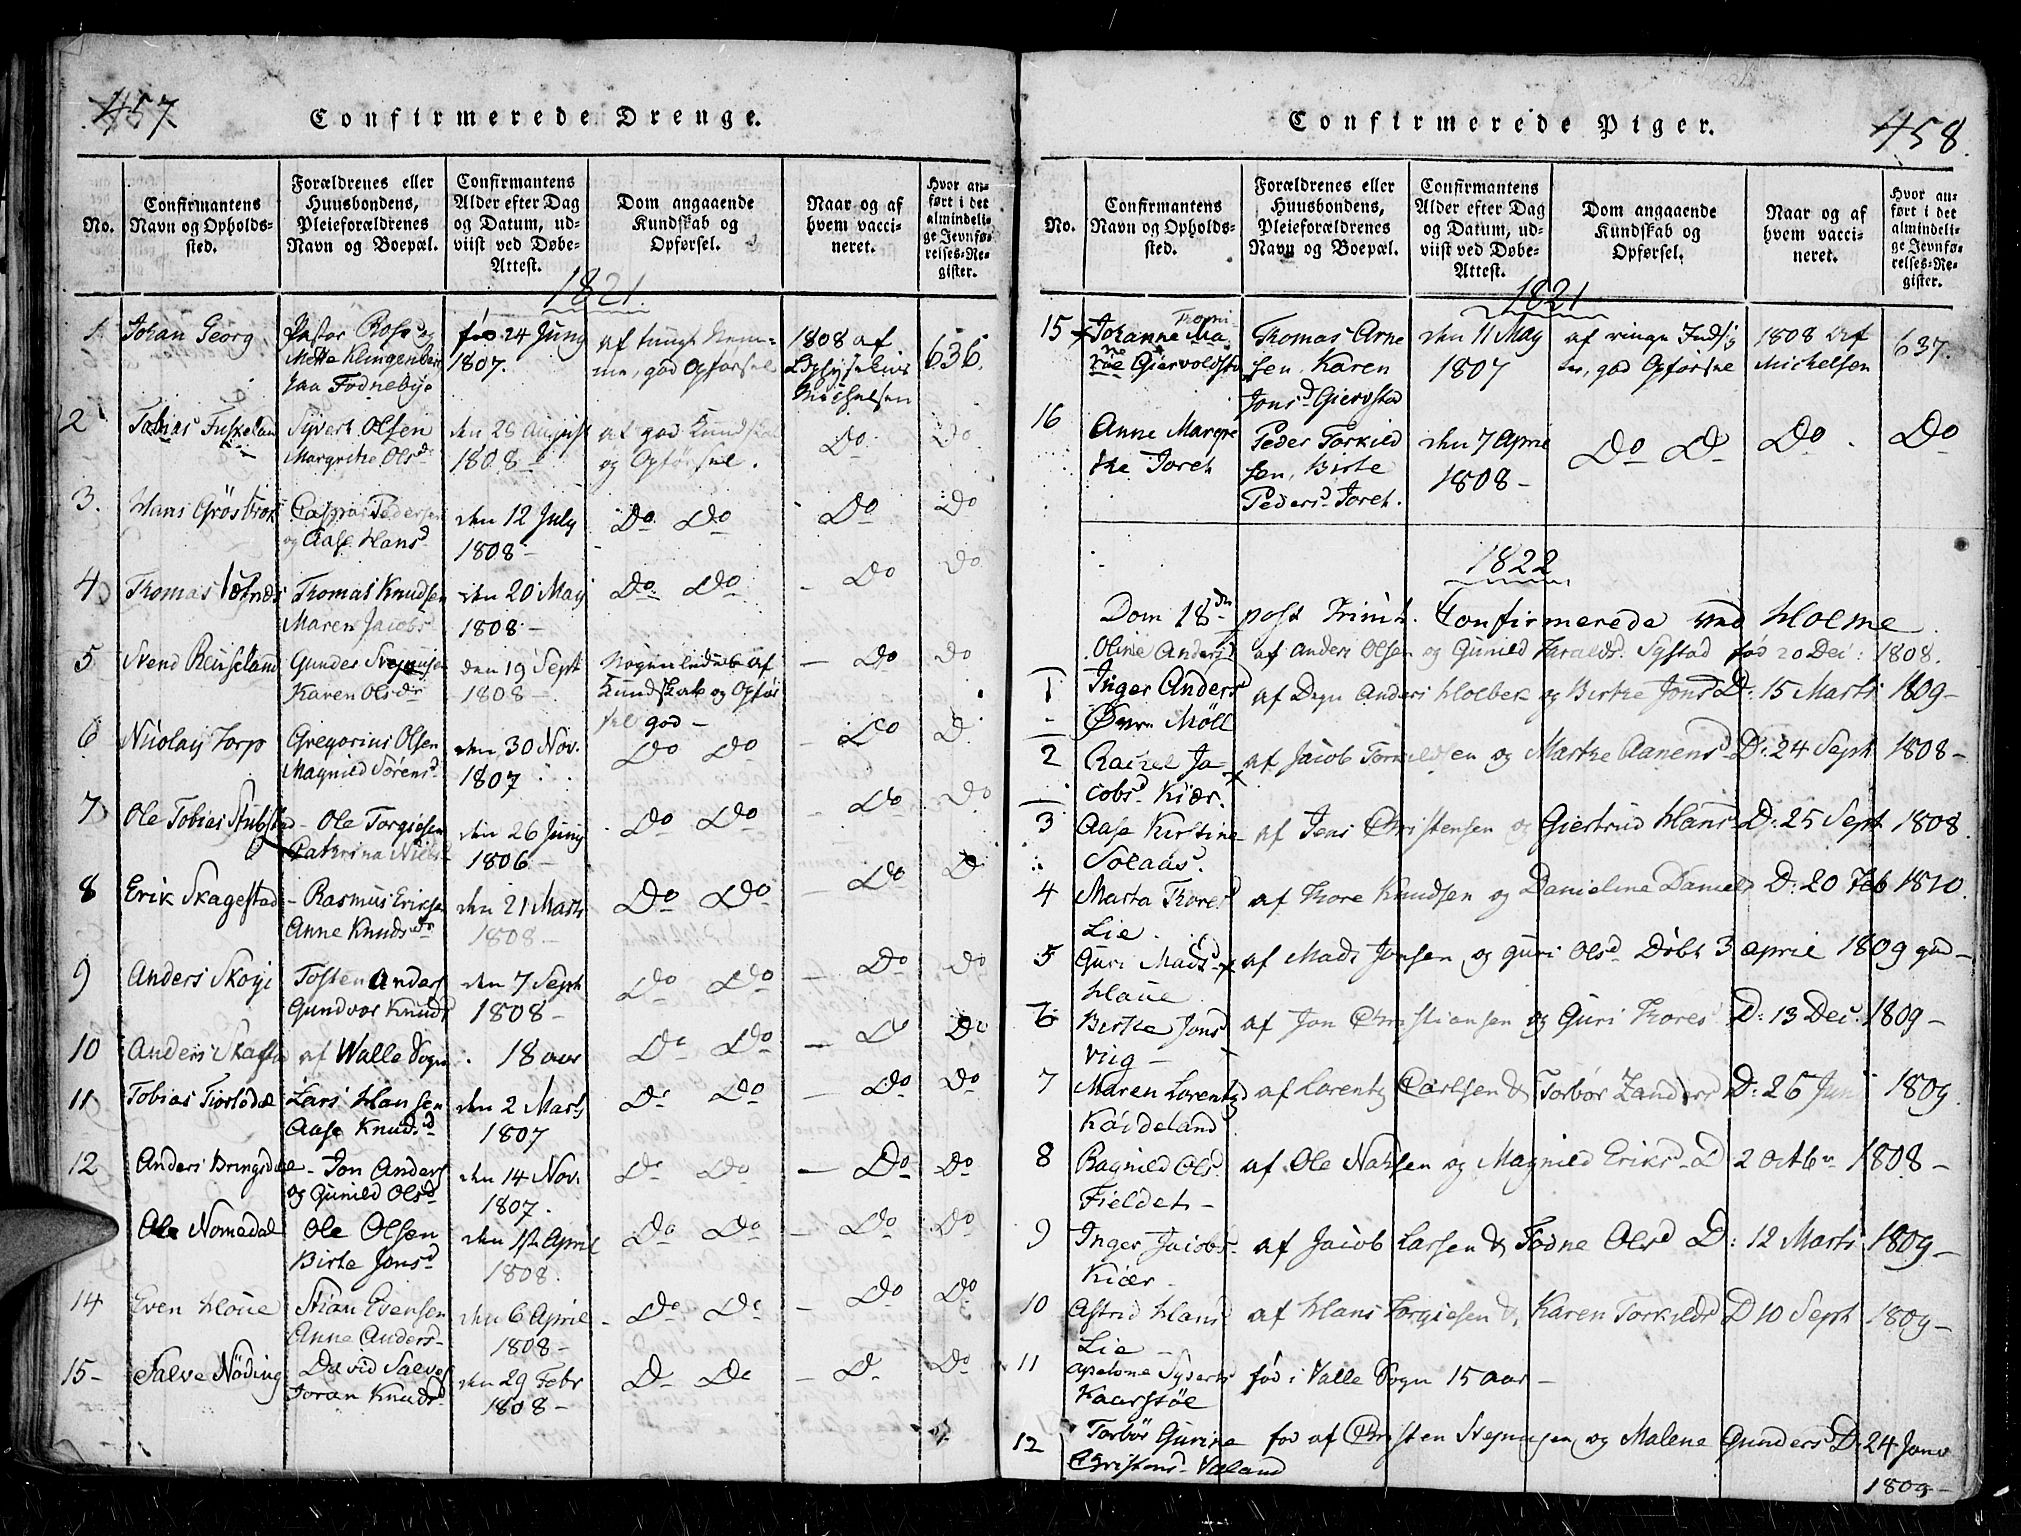 457
Confirmerede Drenge.
No.
Confirmantens Navn og Opholds-sted.
Forældrenes eller Huusbondens, Pleieforældrenes Navn og Boepæl.
Confirmantens Alder efter Dag og Datum, ud-viist ved Døbe-Attest.
Dom angaaende Kundskab og Opførsel.
Naar og af hvem vacci-neret.
Hvor an-ført i det almindeli-ge Jevnfø-relses-Re-gister.
1821.
1 Johan Georg Pastor fød 24 Juny af tungt Nem- 1808 af 636.
Mette Klingenber 1807. me, god Opførsel
paa Fodnebye Michelsen
2 Tobias Syvert Olsen den 28 August af god Kundskab Do Do
Margrethe Olsd 1808 og Opførsel.
3. Hans Pedersen den 12 July Do Do Do Do
og Aase Hansd 1808 -
4 Thomas Thomas Knudsen den 20 May Do Do - Do Do
Maren Jacobs 1808 -
5 Svend Gunder den 19 Sept Nogenledes af - Do Do
Karen Olsdr 1808 - Kundskab og Opfør
sel god -
6 Nicolay Torp Gregorius Olsen den 30 Nov. Do Do - Do D
Magnild Sørensd 1807
7 Ole Tobias Stubstad - Ole Torgiesen den 26 Juny Do Do - Do Do
Cathrina Niels 1806 -
8 Erik Skagestad - Rasmus Ericsen den 21 Marts Do Do - Do D
Anne Knudsdr 1808 -
9 Anders Tosten Anders den 7 Sept Do Do - Do Do
Gundvor Knuds 1808 -
10 Anders af Walle Sogn . 18 aar Do Do - Do Do
11 Tobias Lars Hansen den 2 Marts Do Do - Do Do
Aase Knudsd 1807
12 Anders Bringsdal - Jon Anders den 14 Nov. Do Do - Do Do
og Gunild Olsd 1807.
Ole Nomedal Ole Olsen den 1st April Do Do - Do Do
Birte Jonsd 1808.
14 Even Houe Stian Evensen den 6 April Do Do - Do Do
Anne Anders- 1808-
15- Salve Nöding David Salves den 29 Febr D Do - D Do
Joran Knudsd 1808 -
458.
Confirmerede Piger.
No.
Confirmantens Navn og Opholds-sted.
Forældrenes eller Huusbondens, Pleieforældrenes Navn og Boepæl.
Confirmantens Alder efter Dag og Datum, ud-viist ved Døbe-Attest.
Dom angaaende Kundskab og Opførsel.
Naar og af hvem vacci-neret.
Hvor an-ført i det almindeli-ge Jevnfø-relses-Re-gister.
1821
15 Johanne Ma Thomas Arne den 11 May af ringe Indsig 1808 Af 637.
Giervoldsta sen, Karen 1807 god Opførsel Michelsen
Jonsd
16 Anne Margre Peder Torkild den 7 April Do D Do. Do
the sen, Birte 1808 -
Pedersd
1822
Dom 18 post Trinit. Confirmerede ved Holme
Oline Andersd af Anders Olsen og Gunild fød 20 Dec: 1808.
1 Inger Anders af Anders Holbek og Birthe Jonsd D: 15 Marts 1809-
Øvre Möll
2 Rachel Ja af Jacob Torkildsen og Marthe Aanensd D: 24 Sept 1808-
cobsd Kiær.
3 Aase Kirstine af Jens Christensen og Giertrud Hans D: 25 Sept 1808.
Solaas
4 Marta Thoresd af Thore Knudsen og Danieline Daniels D: 20 Feb 1810.
Lie.
5 Guri Mads af Mads Jonsen og guri Olsd Døbt 3 april 1809
Haue
6 Birthe Jons af Jon Christiansen og Guri Thores D: 13 Dec. 1809 -
Viig -
7 Maren Lorentz af Lorentz Carlsen & Torbør D: 26 Juni 1809.
Kaideland
8 Ragnild Olsd af Ole og Magnild Eriksd D 2 Octbr 1808 -
Fieldet -
9 Inger Jacobs- af Jacob Larsen & Todne Olsd D: 12 Marts 1809-
Kiær.
10 Astrid Hansd af Hans Torgiesen & Karen Torkildsd D 10 Sept 1809-
Lie -
11 Apelone Syverts fød i Valle Sogn 15 aar -
Kaarstøe
12 Torbör Gurine fød af Christen og Malene Gunders D: 24 Janv
Christens- 1809-